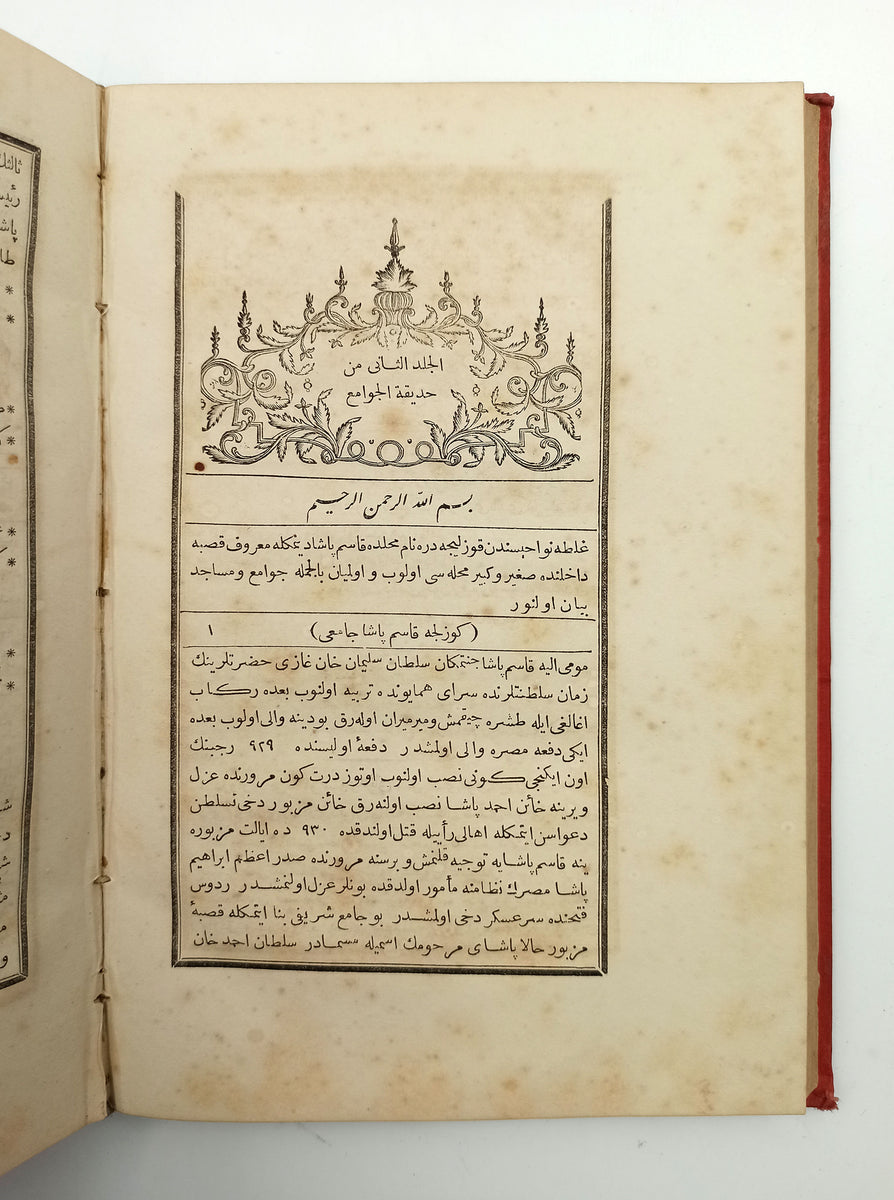 الجلد الثانى من
حديقة الجوامع
بسم الله الرحمن الرحيم
غلطه نواحيسندن قوزليجه دره نام محلده قاسم پاشا ديمكله معروف قصبه
داخلنده صغير و كبير محله سى اولوب و اولميان بالجمله جوامع و مساجد
بيان اولنور
(كوزلجه قاسم پاشا جامعى) ١
مومى اليه قاسم پاشا جنتمكان سلطان سليمان خان غازى حضرتلرينك
زمان سلطنتلرنده سراى همايونده تربيه اولنوب بعده ركاب
اغالغى ايله طشره چيقمش و ميرميران اوله رق بودينه والى اولوب بعده
ايكى دفعه مصره والى اولمشدر دفعهٔ اوليسنده ٩٢٩ رجبنك
اون ايكنجى كونى نصب اولنوب اوتوز درت كون مرورنده عزل
و يرينه خائن احمد پاشا نصب اولنه رق خائن مزبور دخى تسلطن
دعواسن ايتمكله اهالى رأييله قتل اولندقده ٩٣٠ ده ايالت مزبوره
ينه قاسم پاشايه توجيه قلنمش و برسنه مرورنده صدر اعظم ابراهيم
پاشا مصرك نظامنه مأمور اولدقده بونلر عزل اولنمشدر ردوس
فتحنده سرعسكر دخى اولمشدر بو جامع شريفى بنا ايتمكله قصبهٔ
مزبور حالا پاشاى مرحومك اسميله مسمادر سلطان احمد خان
ثالثك
پاش
طا